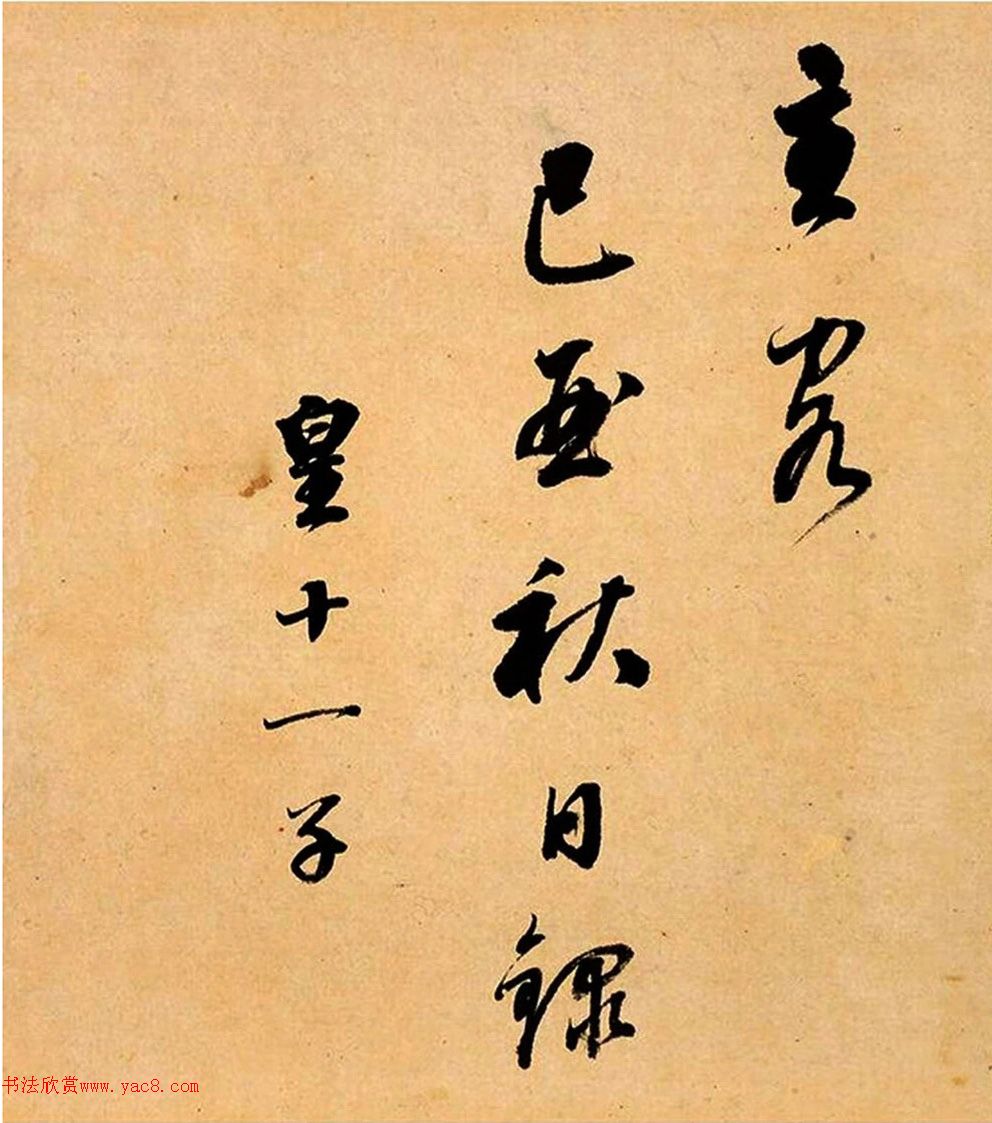 主客
己酉秋日録
皇十一子
书法欣赏www.yac8.com